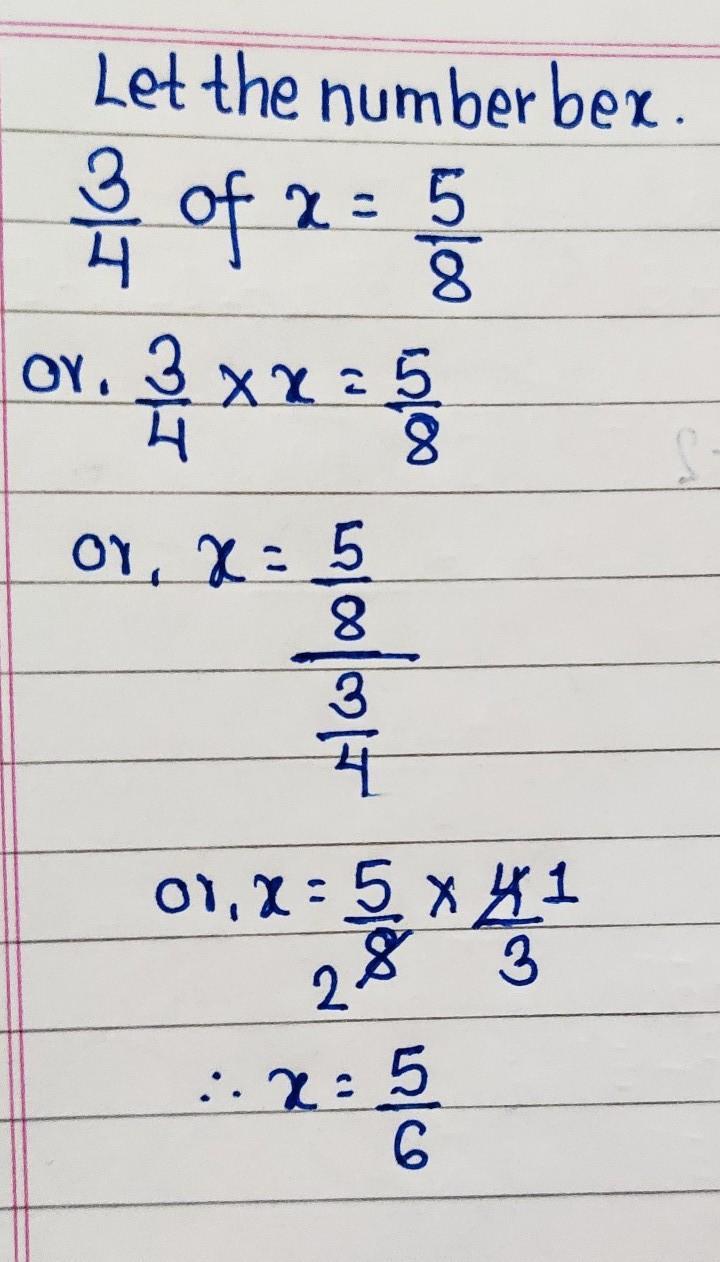 Let the number be x.
3/4 of x = 5/8
or, 3/4 × x = 5/8
or, x = 5/8 / 3/4
or, x = 5/8 2 × 4 1/3
∴ x = 5/6